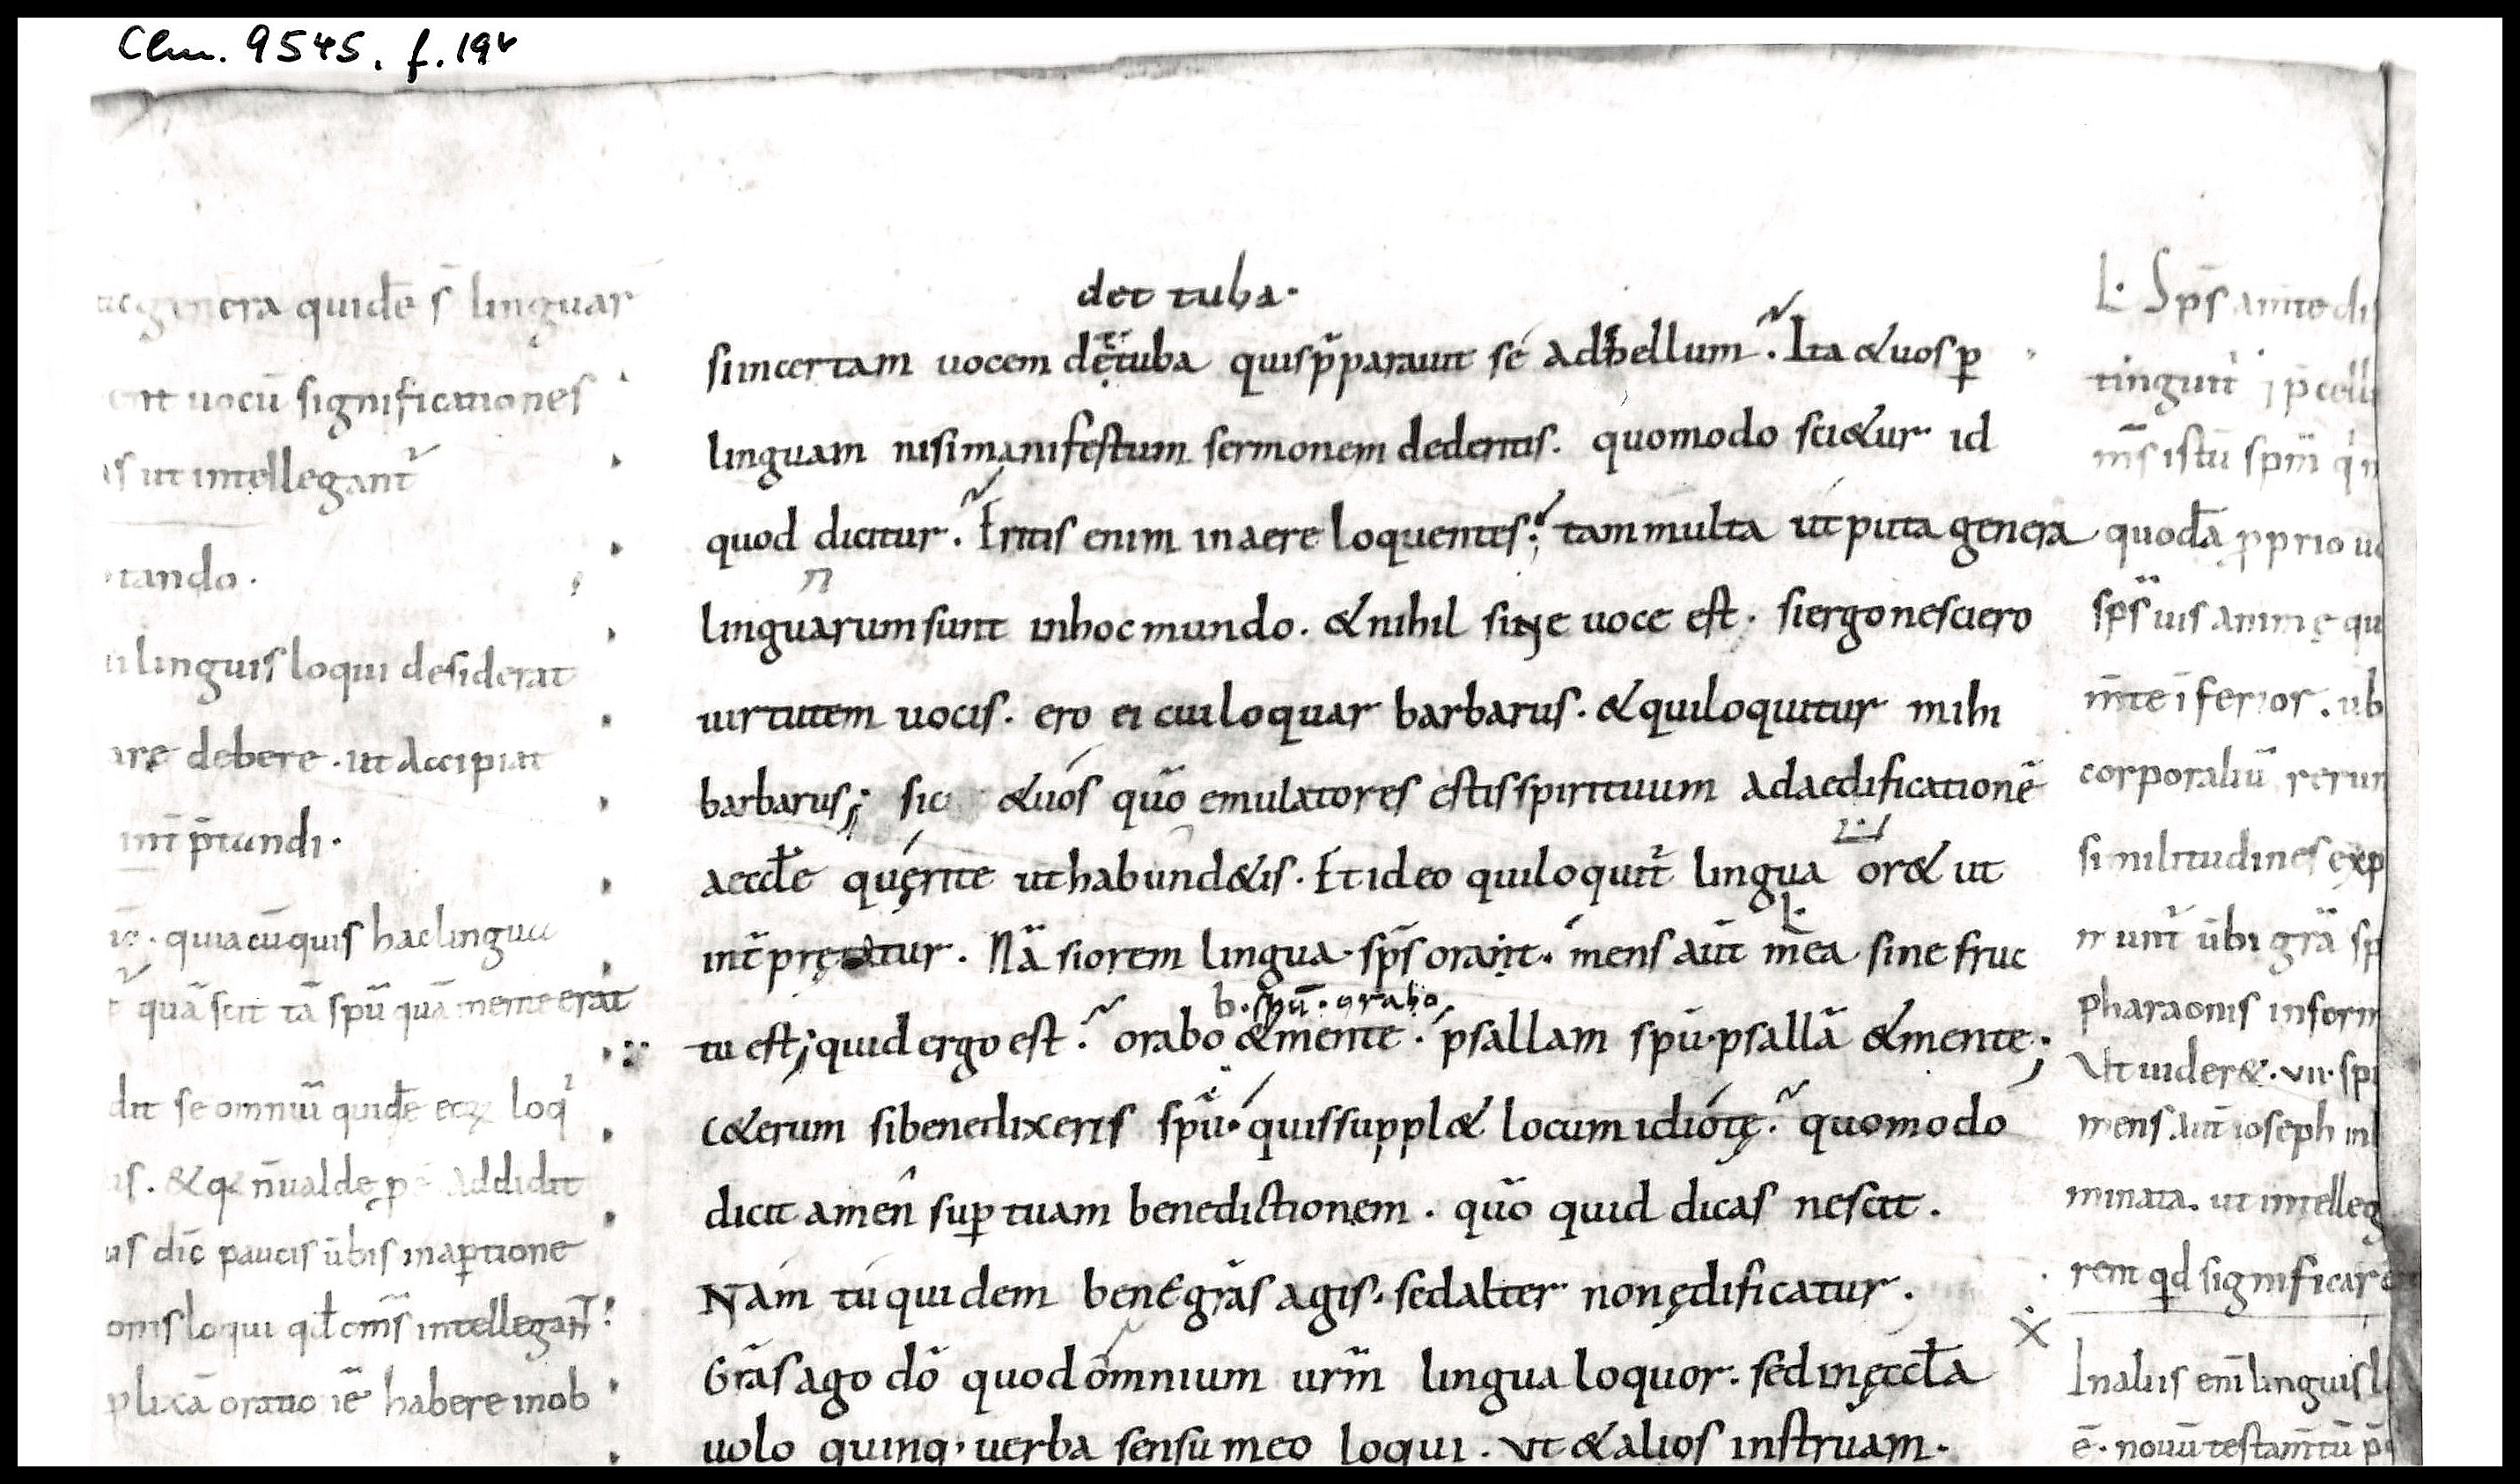 Clm. 9545. f. 19v
genera quidē s̄ linguar
uocū significationes
ut intellegant᷑
tando.
linguis loqui desiderat
debere. ut accipiat
int̄p̄tandi.
quia cū quis hac lingua
quā scit tā spū quā mente erat
dit se omniū quidē loq᷑
us. & n̄ ualde addidit
dic̄ paucis ūbis in aꝑtione
onis loqui qd̄ om̄s intellegan̄t
plicā oratio habere in ob
det tuba.
si incertam uocem dęt tuba quis p̄parauit sé ad bellum. Ita & uos ꝑ
linguam nisi manifestum sermonem dederitis. quomodo sci&ur id
quod dicitur. Eritis enim in aere loquentes; tam multa ut puta genera
linguarum sunt in hoc mundo. & nihil sine uoce est. si ergo nesciero
uirtutem uocis. ero ei cui loquar barbarus. & qui loquitur mihi
barbarus; sic & uós quō emulatores estis spirituum ad aedificationē
aeccłe quęrite ut habund&is. Et ideo qui loquit᷑ lingua or& ut
int̄prętatur. Nā si orem lingua. sp̄s orat. mens aūt mea sine fruc
b. spū. orabo
tu est; quid ergo est. orabo & mente. psallam spū. psallā & mente;
C&erum si benedixeris spū. quis suppl& locum idiótę. quomodo
dicit amen sup̱ tuam benedictionem. quō quid dicas nescit.
Nam tu quidem bene grā̄s agis. sed alter non ędificatur.
Grā̄s ago dō quod omnium urm̄ lingua loquor. sed in ęccła
uolo quinq; uerba sensu meo loqui. Ut & alios instruam.
Sp̄s di
tinguit᷑
m̄s istū spm̄
quodā ꝓprio
sp̄s uis animę qu
m̄te īferior. ub
corporaliū rerum
similitudines exp
ūbi grā sp
pharaonis inform
Ut uider&. VII. spi
mens aūt ioseph
minata. ut intelleg
rem qd̄ significar
In aliis enī linguis l
ē. nouū testam̄tū